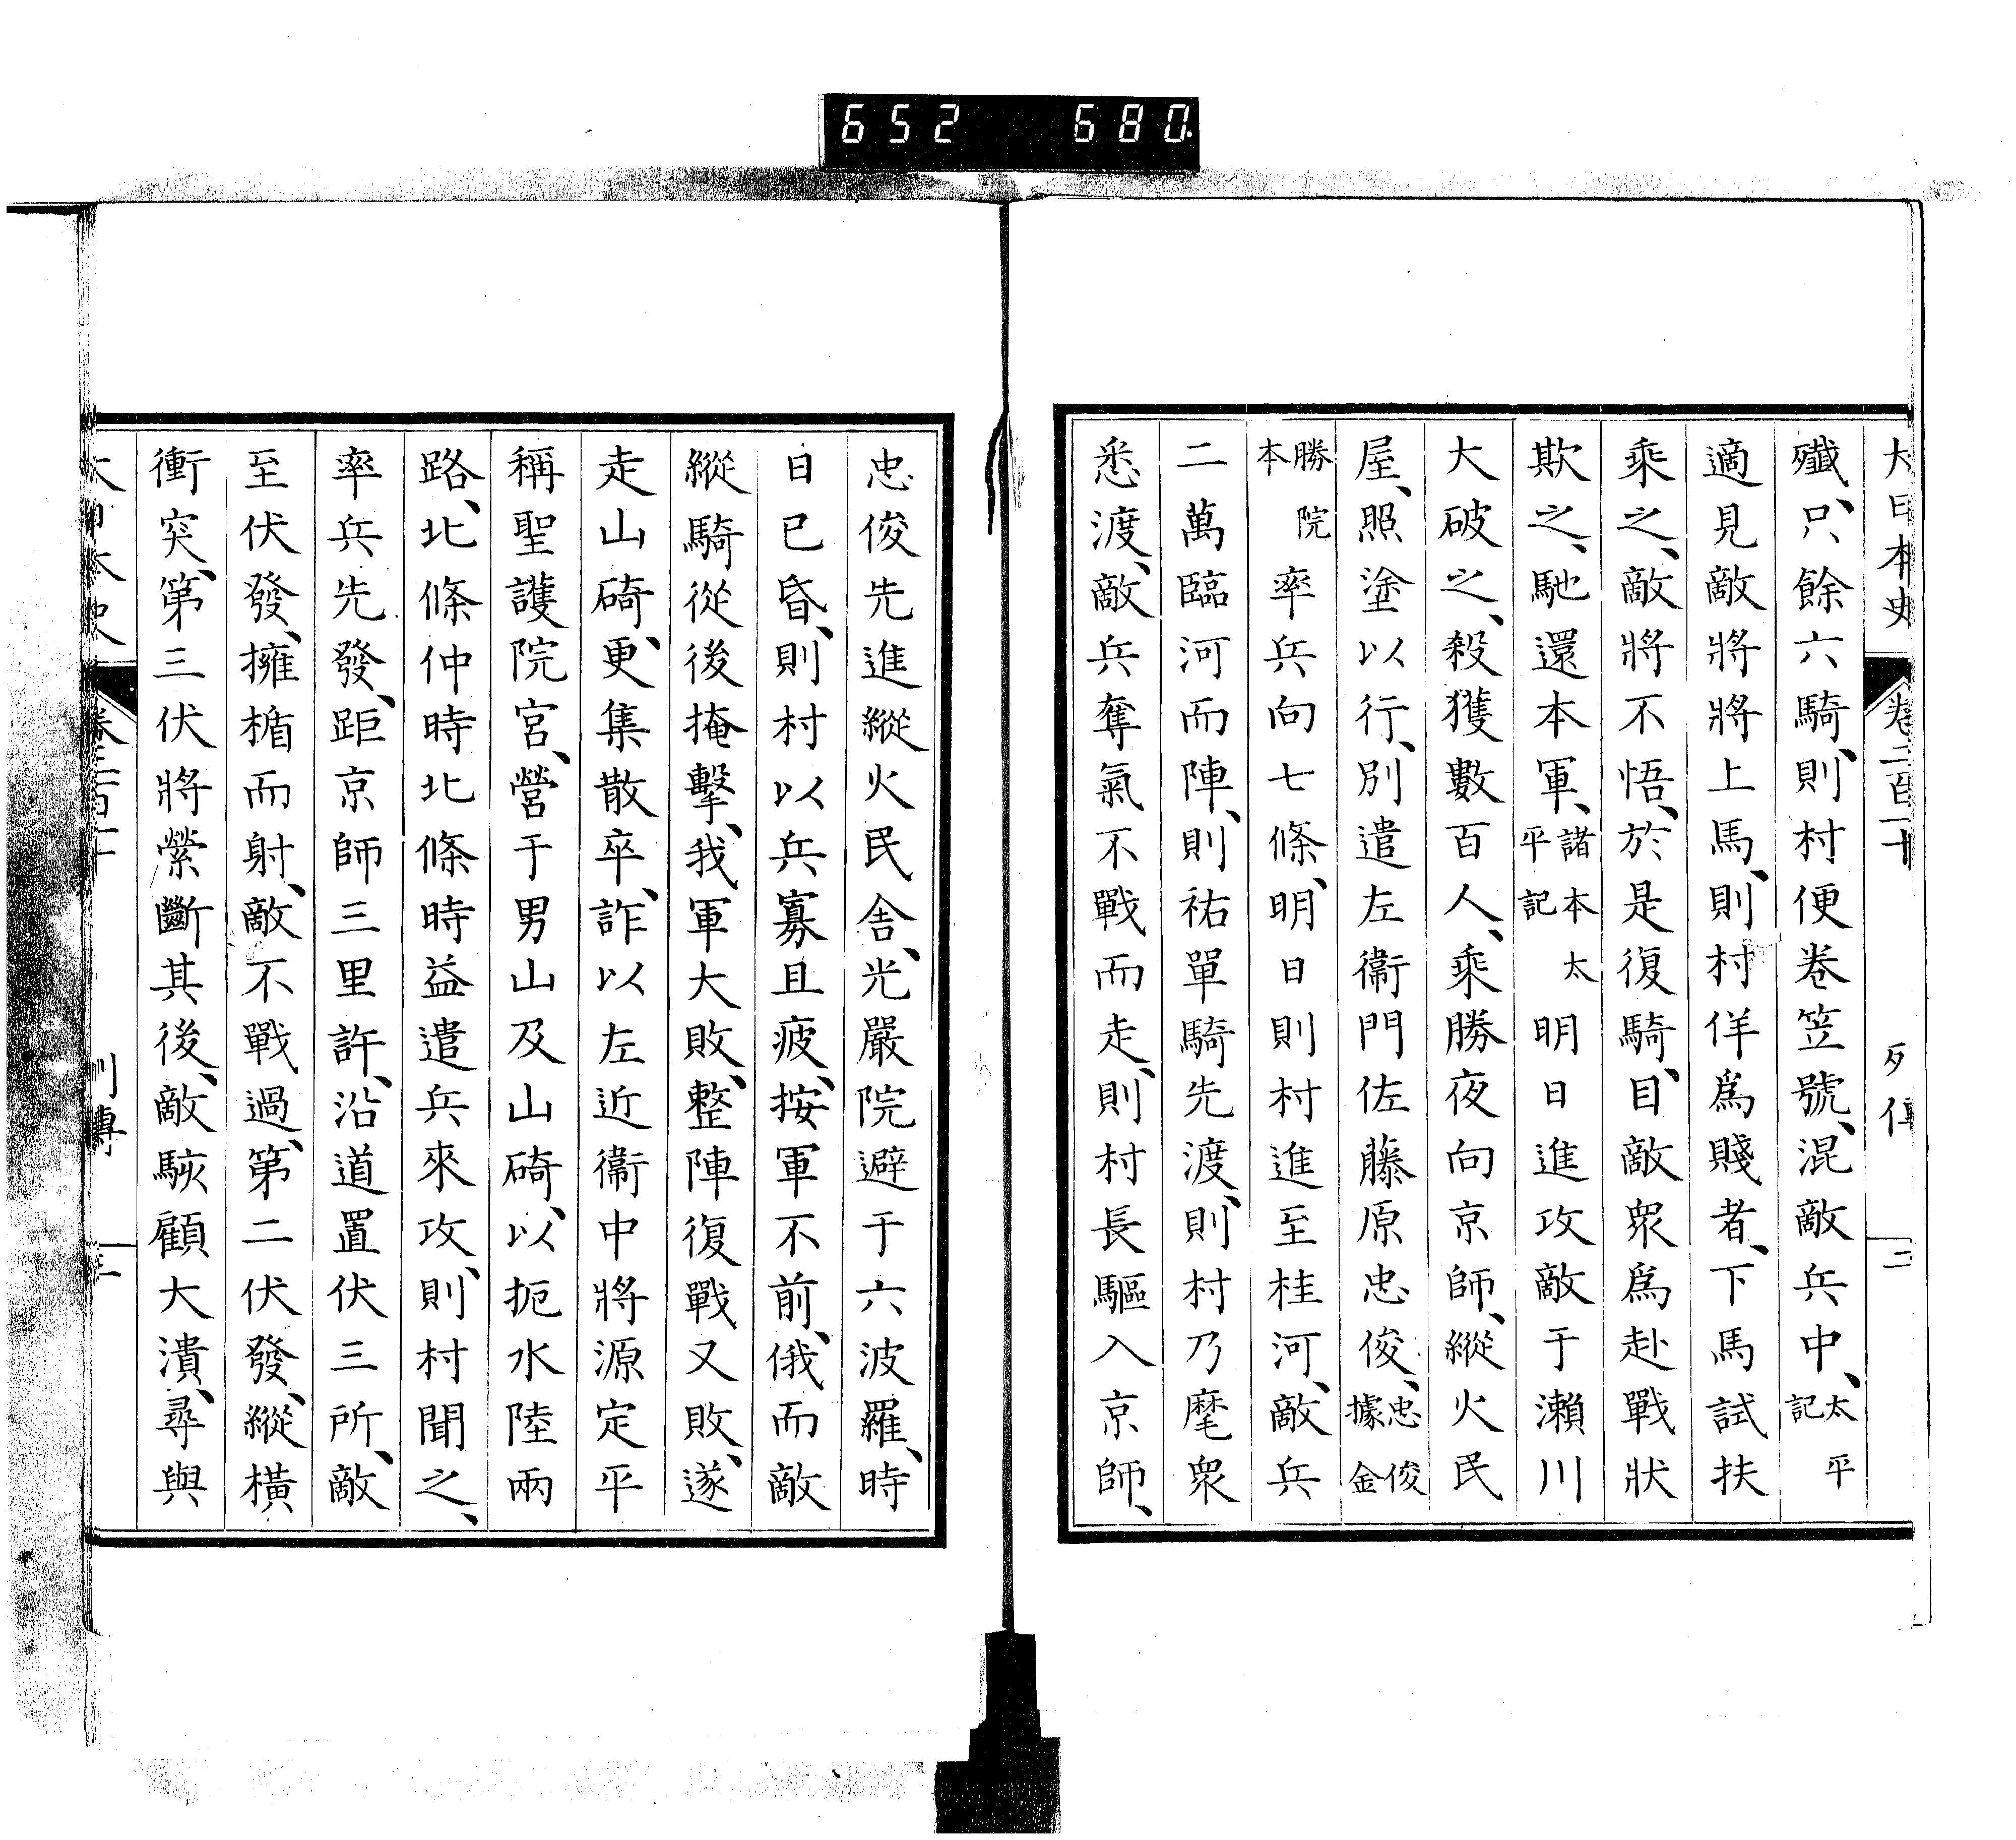 652 680.
大日本史 卷二百一十 列傳 三
殲、只餘六騎、則村便卷笠號、混敵兵中、太平記
適見敵將將上馬、則村佯爲賤者、下馬試扶
乘之、敵將不悟、於是復騎、目敵衆爲赴戰狀
欺之、馳還本軍、諸本太平記明日進攻敵于瀨川
大破之、殺獲數百人、乘勝夜向京師、縱火民
屋、照塗以行、別遣左衞門佐藤原忠俊、忠俊據金
勝院本率兵向七條、明日則村進至桂河、敵兵
二萬臨河而陣、則祐單騎先渡、則村乃麾衆
悉渡、敵兵奪氣不戰而走、則村長驅入京師、
忠俊先進縱火民舍、光嚴院避于六波羅、時
日已昏、則村以兵寡且疲、按軍不前、俄而敵
縱騎從後掩擊、我軍大敗、整陣復戰又敗、遂
走山碕、更集散卒、詐以左近衞中將源定平
稱聖護院宮、營于男山及山碕、以扼水陸兩
路、北條仲時北條時益遣兵來攻、則村聞之、
率兵先發、距京師三里許、沿道置伏三所、敵
至伏發、擁楯而射、敵不戰過、第二伏發、縱橫
衝突、第三伏將縈斷其後、敵駭顧大潰、尋與
大日本史 卷二百一十 列傳